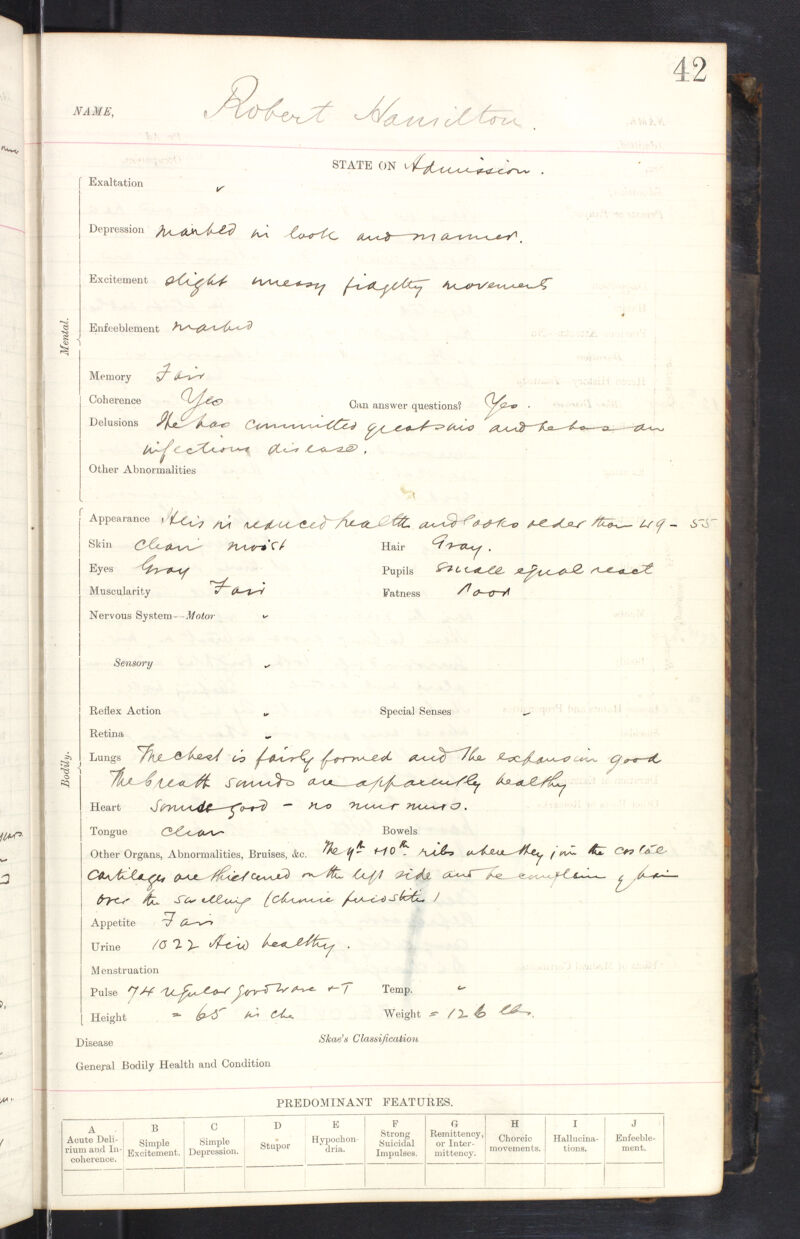 42
NAME, Robert Hamilton.
STATE ON Admission.
Mental.
Exaltation
Depression marked in look and manner.
Excitement slight uneasy fidgetty movements
Enfeeblement marked
Memory Fair
Coherence Yes Can answer questions? Yes.
Delusions He has committed great sins and he has an
infectious disease.
Other Abnormalities
Bodily.
Appearance He is in reduced health and looks older than 49 - 55
Skin clean moist Hair Gray.
Eyes Gray Pupils small equal react
Muscularity Fair Fatness Poor
Nervous System—Motor
Sensory
Reflex Action Special Senses
Retina
Lungs The chest is fairly formed and the expansion good
The breath sounds are apparently healthy
Heart Sounds good - no murmurs.
Tongue Clean Bowels
Other Organs, Abnormalities, Bruises, &c. The 9th + 10th ribs where they join the costal
cartilages are thickened on the left side and he complains of pain
over the swelling (chronic periostitis)
Appetite Fair
Urine 1022 Acid healthy.
Menstruation
Pulse 74 regular good wave + T Temp.
Height = 65 in Weight = 126 lbs.
Disease Skae's Classification
General Bodily Health and Condition
PREDOMINANT FEATURES.
A B C D E F G H I J
Acute Deli-
rium and In-
coherence.
Simple
Excitement.
Simple
Depression.
Stupor
Hypochon-
dria.
Strong
Suicidal
Impulses.
Remittency,
or Inter-
mittency.
Choreic
movements.
Hallucina-
tions.
Enfeeble-
ment.